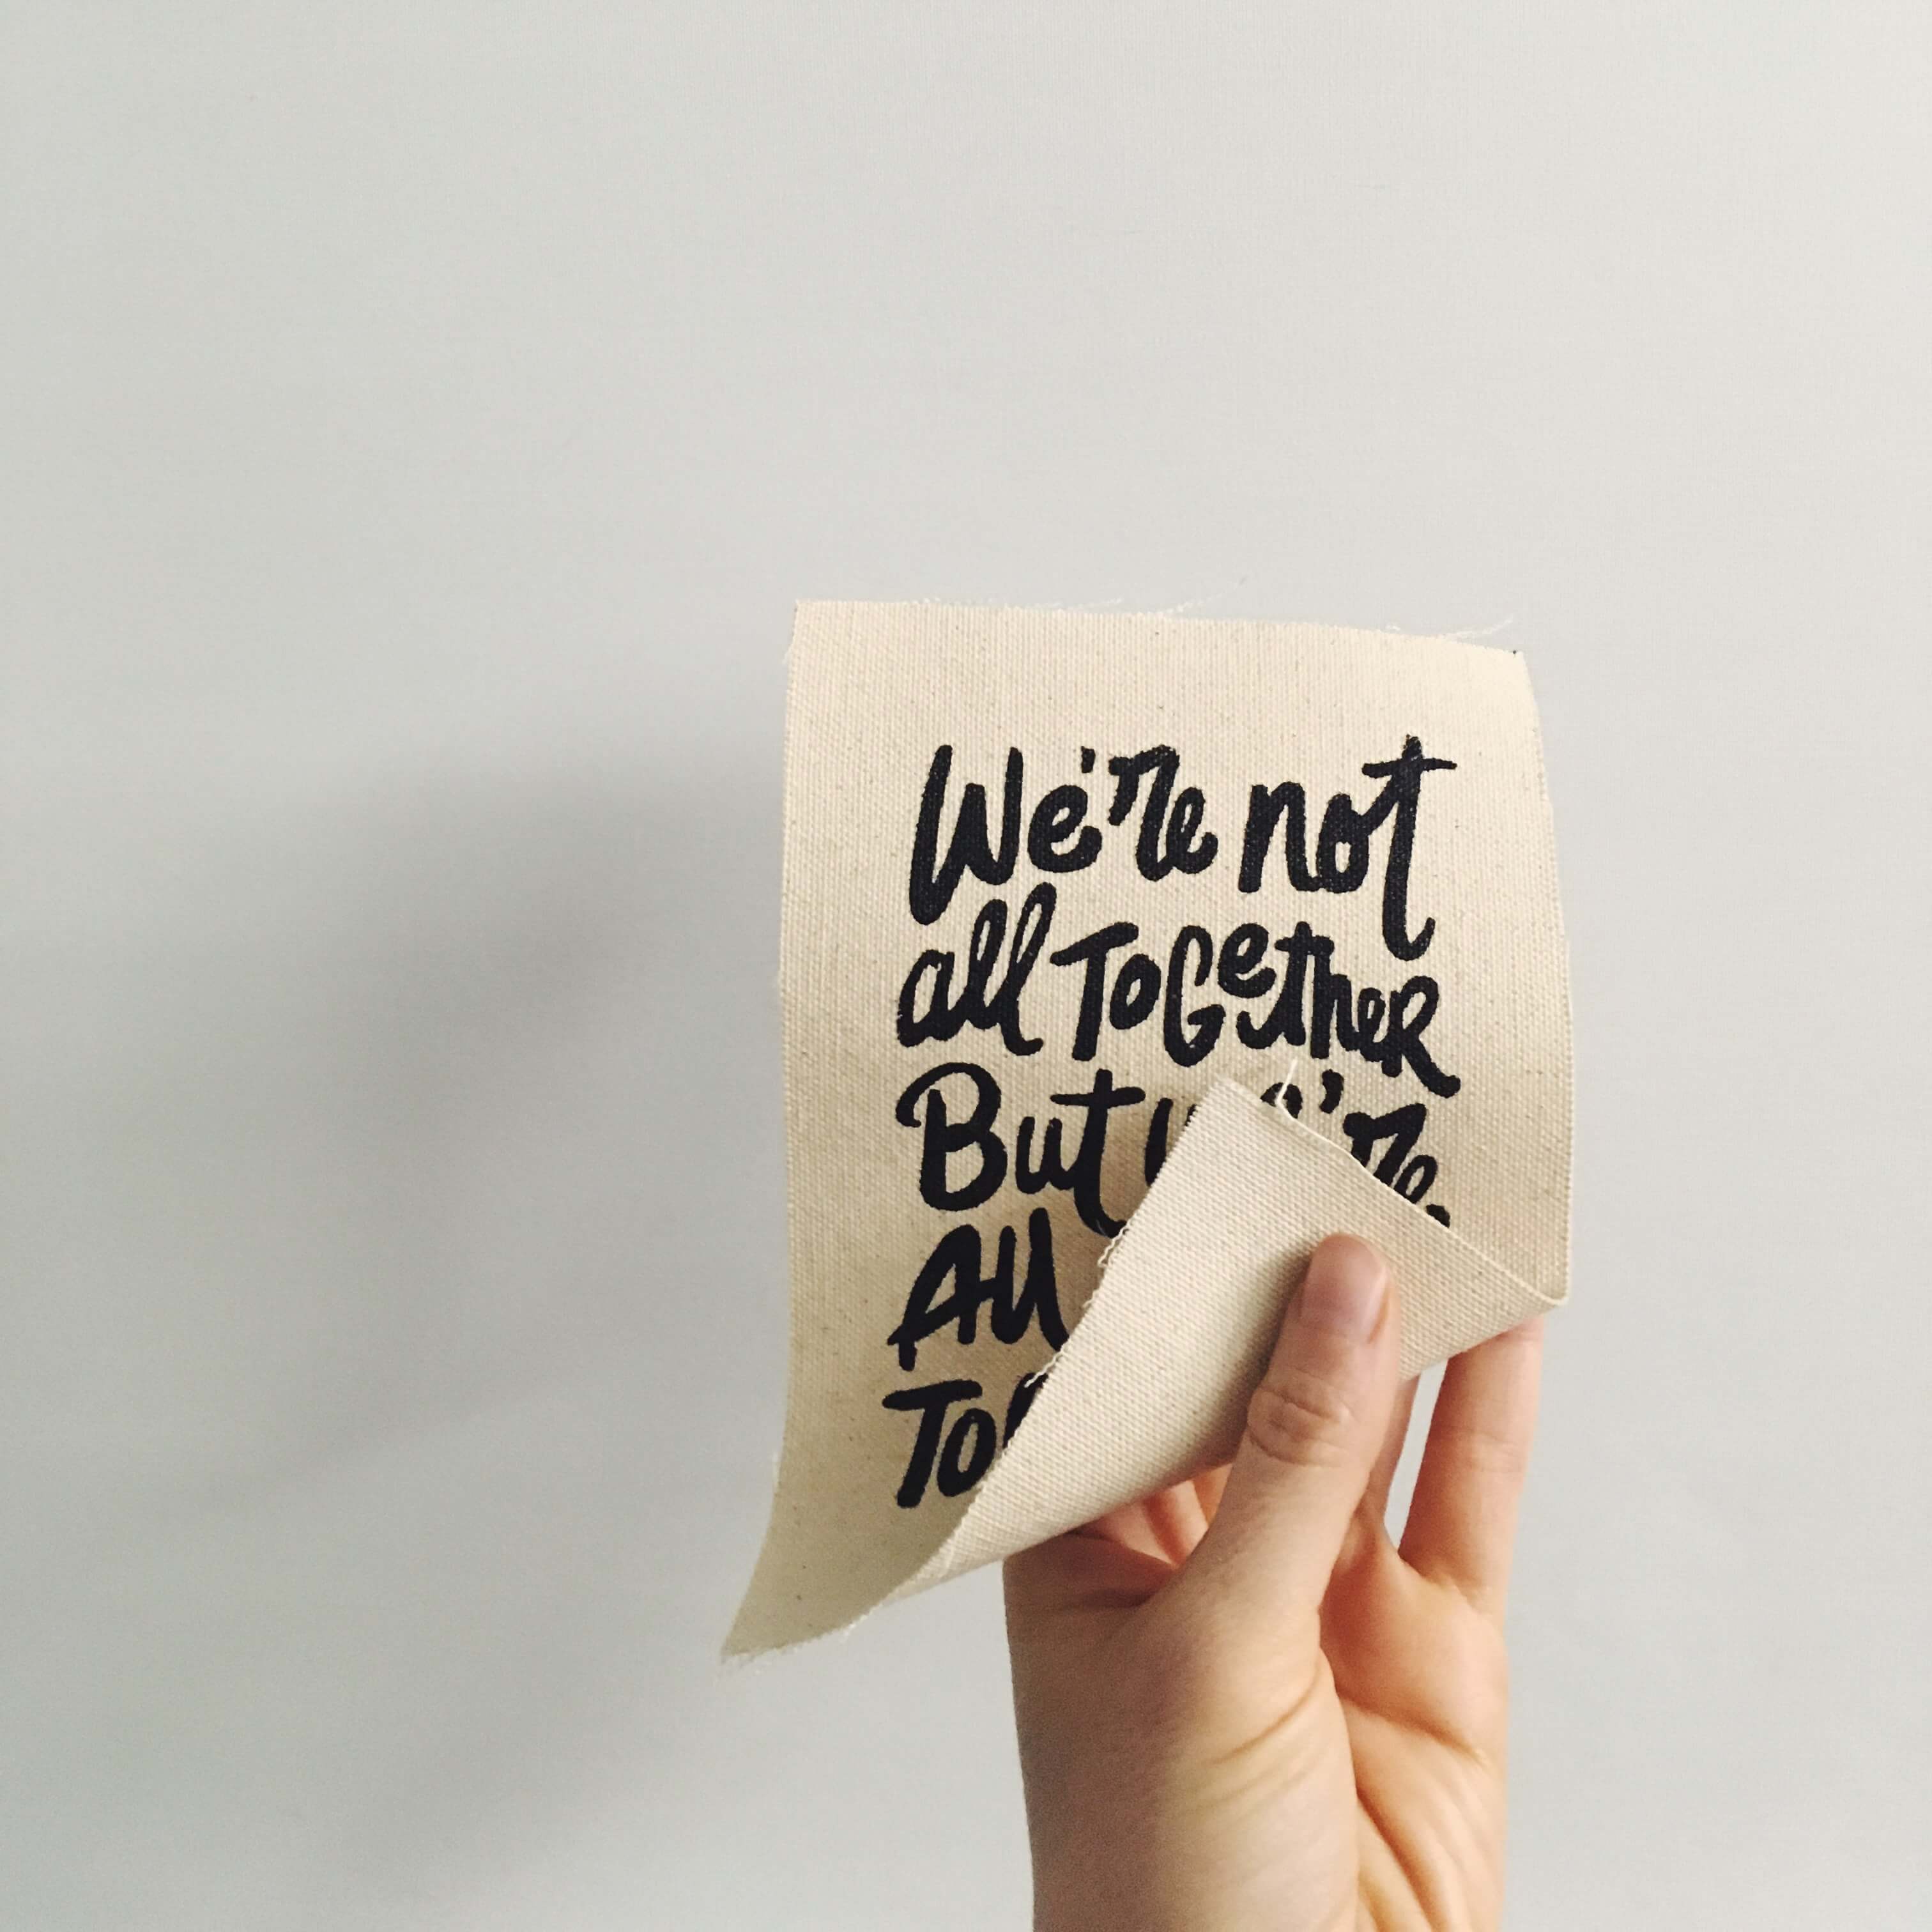 We're not
all ToGetheR
But we're
All
To